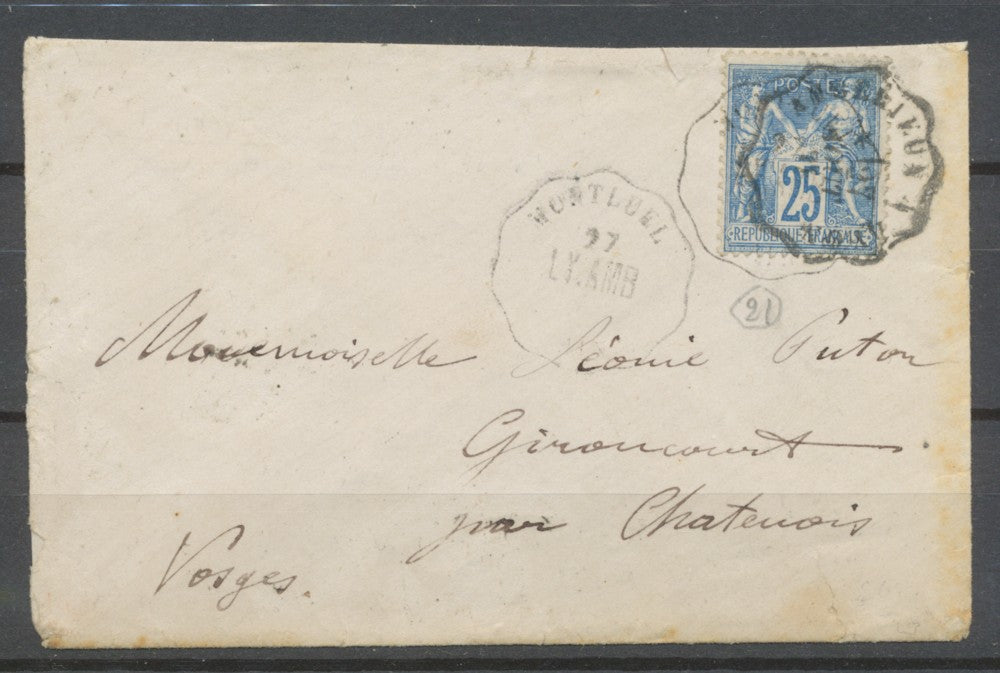 POSTES
25
REPUBLIQUE FRANCAISE
MONTLUEL
27
LY. AMB
21
Mademoiselle Léonie Puton
Gironcourt
par Chatenois
Vosges.